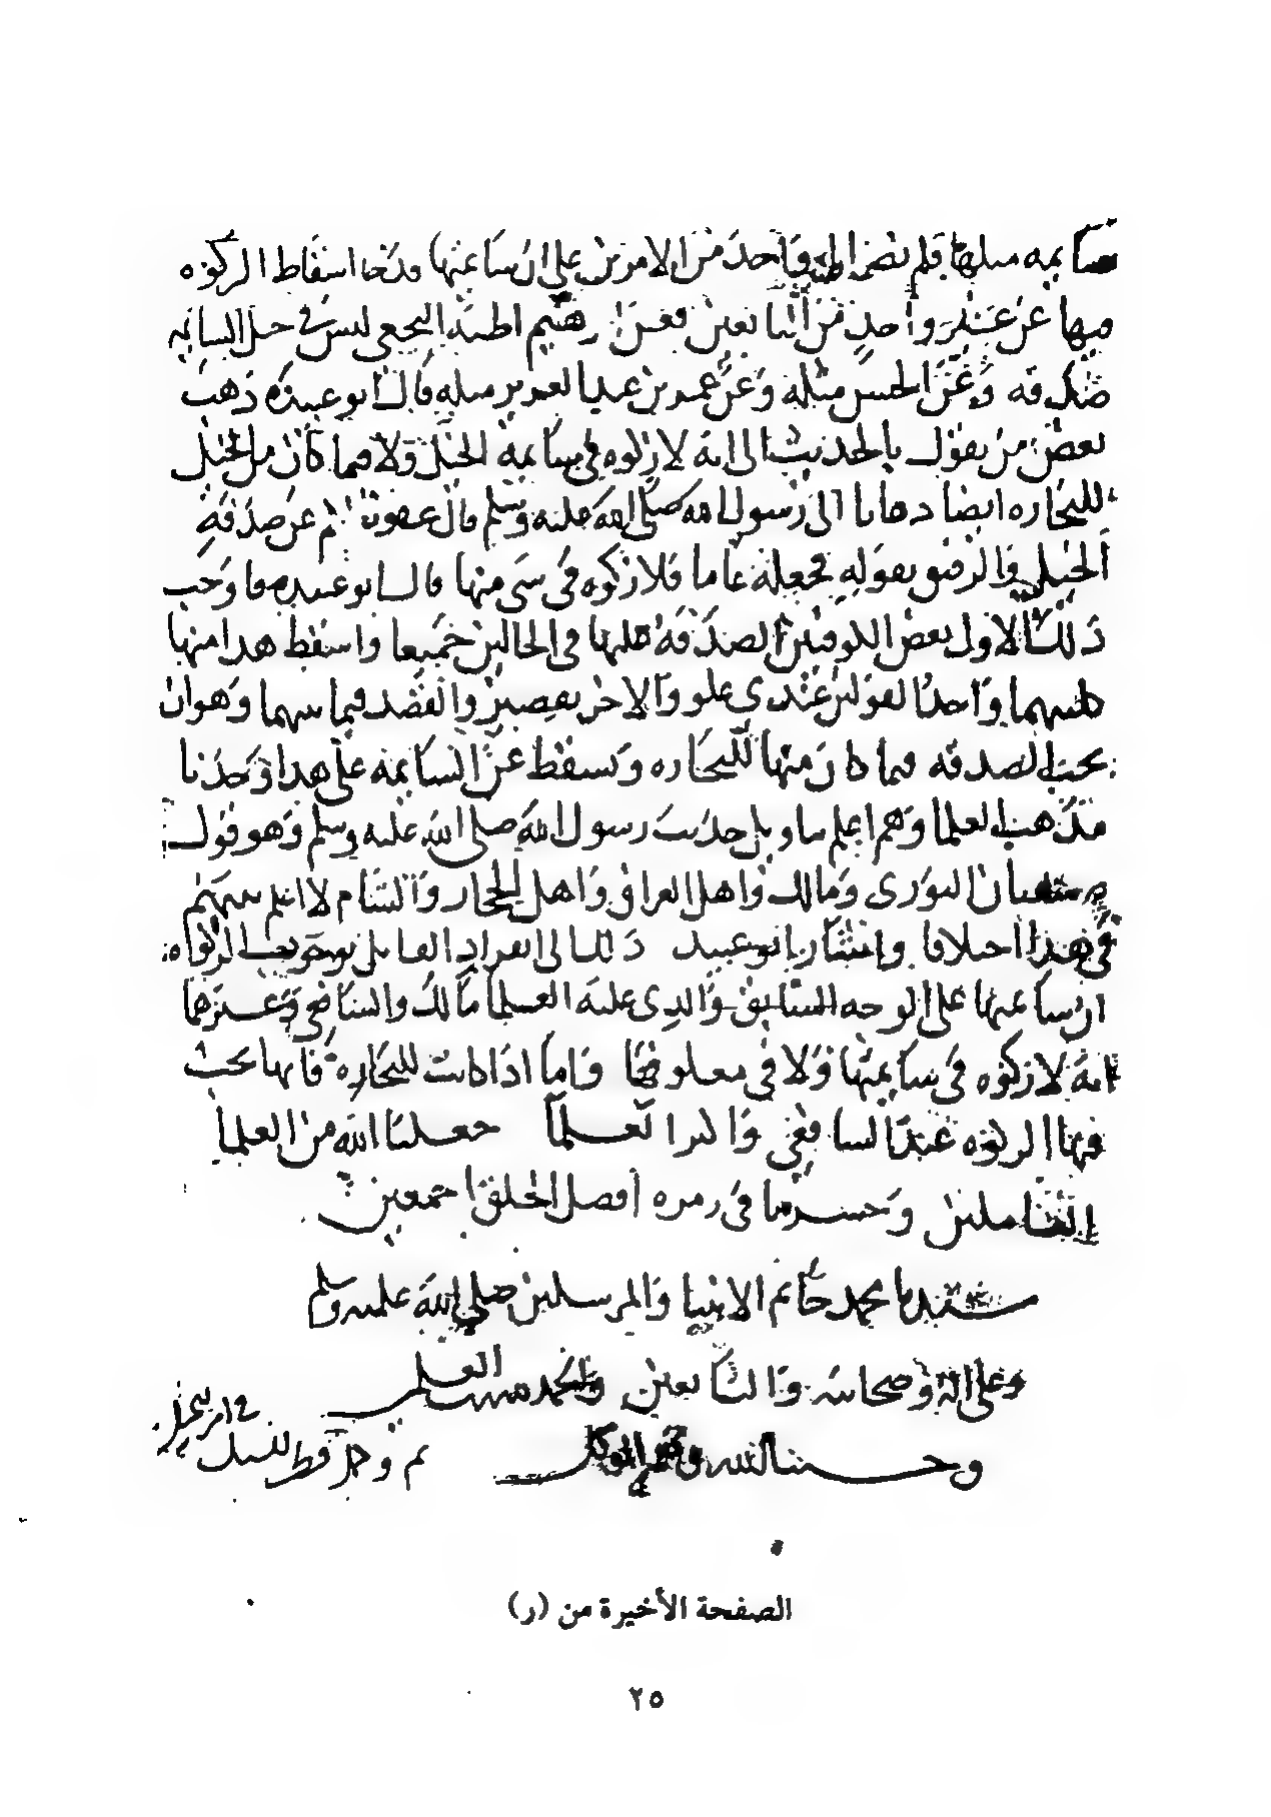 سائمة مثلها فلم نصر الى واحد من الامرين على ان سائمتها قد نحا اسقاط الزكوة
فيها عن غير واحد من التابعين فعن ابرهيم اظنه النخعي ليس في خيل السائمة
صدقة وعن الحسن مثله وعن عمر بن عبد العزيز مثله قال ابو عبيدة ذهب
بعض من يقول بالحديث الى انه لا زكوة في سائمة الخيل ولا فيما كان من الخيل
للتجارة ايضا ذهابا الى رسول الله صلى الله عليه وسلم قال عفوت لكم عن صدقة
الخيل والرقيق بقوله فجعله عاما فلا زكوة في شي منها قال ابو عبيدة فاوجب
ذلك الاول بعض الكوفيين الصدقة عليها في الحالين جميعا واسقط هذا منها
كليهما واحد القولين عندي غلو والاخر تقصير والقصد فيما بينهما وهو ان
تجب الصدقة فيما كان منها للتجارة وتسقط عن السائمة على هذا وجدنا
مذهب العلما وهم اعلم بتاويل حديث رسول الله صلى الله عليه وسلم وهو قول
سفيان الثوري ومالك واهل العراق واهل الحجاز والشام لا اعلم بينهم
في هذا اختلافا واشار ابو عبيد ذلك الى انفراد القائل بوجوب الزكواة
ان سائمتها على الوجه السابق والذي عليه العلما مالك والشافعي وغيرهما
انه لا زكوة في سائمتها ولا في معلوفتها واما اذا كانت للتجارة فانها تجب
فيها الزكوة عند الشافعي واكثر العلما جعلنا الله من العلما
العاملين وحشرنا في زمرة افضل الخلق اجمعين
سيدنا محمد خاتم الانبيا والمرسلين صلى الله عليه وسلم
وعلى اله وصحابته والتابعين والحمد لله رب العلمين
وحسبنا الله ونعم الوكيل
الصفحة الأخيرة من (ر)
٢٥